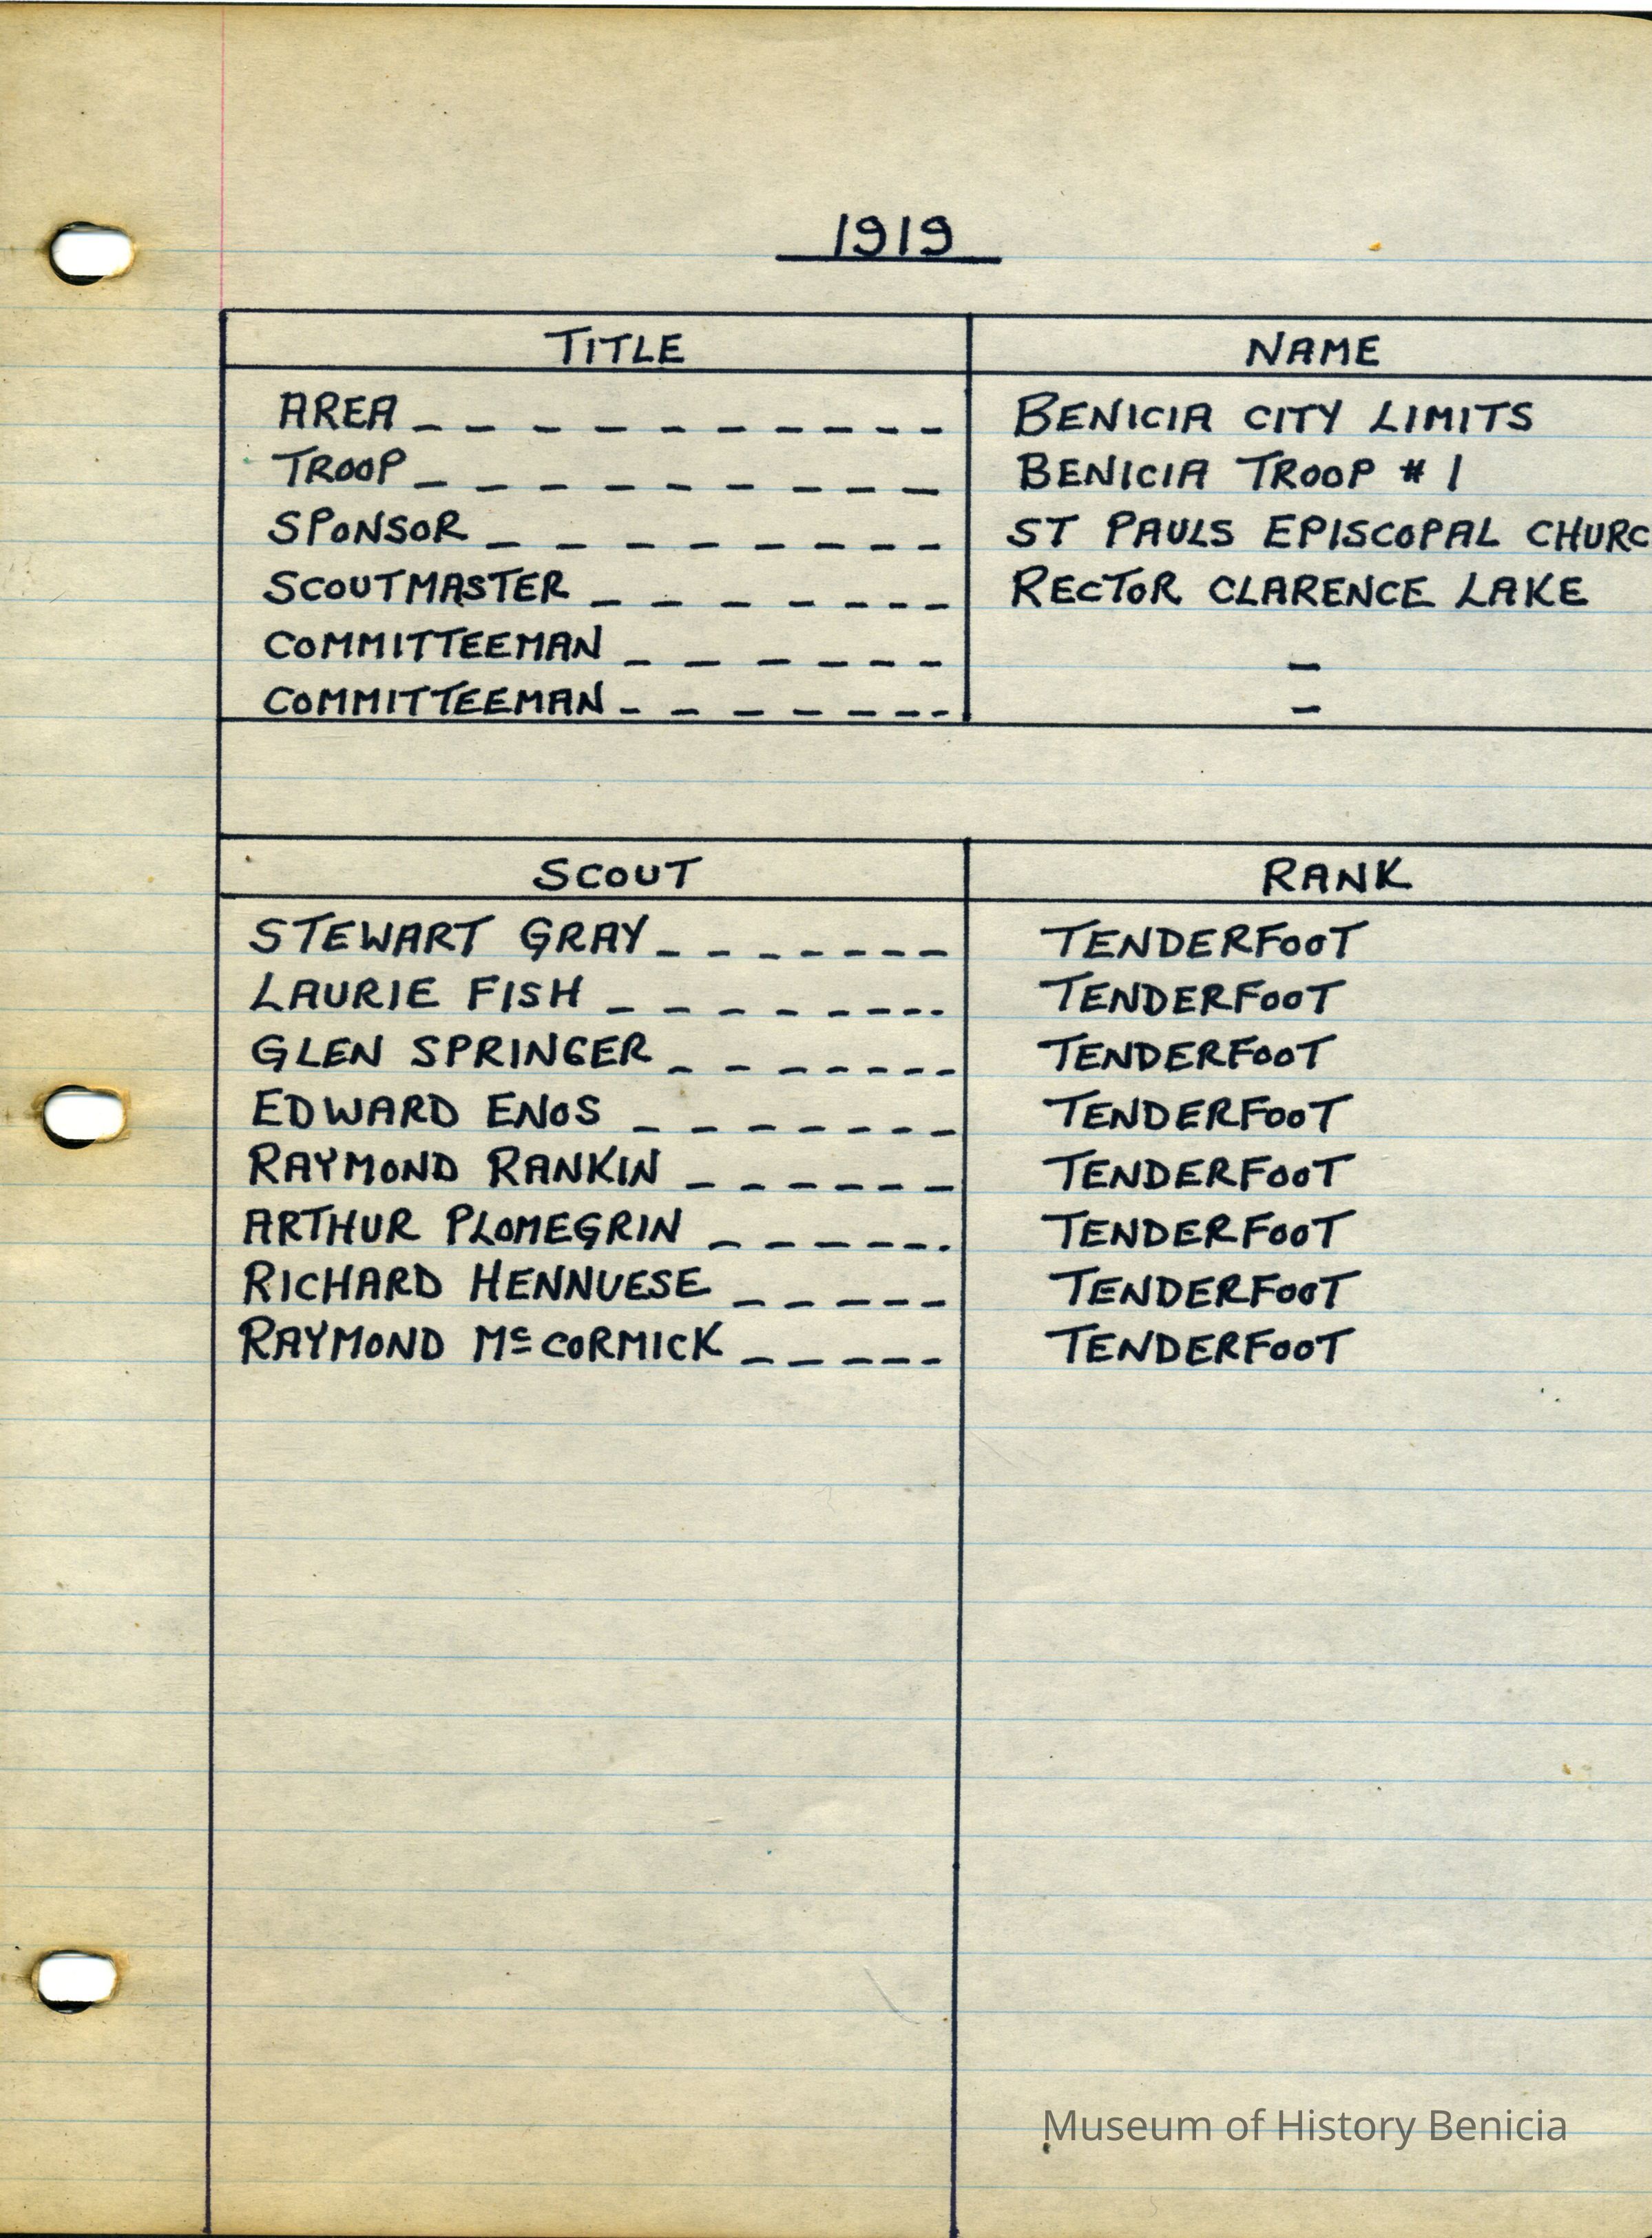 1919
TITLE NAME
AREA _ _ _ _ _ _ _ _ _ BENICIA CITY LIMITS
TROOP _ _ _ _ _ _ _ _ _ BENICIA TROOP # 1
SPONSOR _ _ _ _ _ _ _ _ ST PAULS EPISCOPAL CHURC
SCOUTMASTER _ _ _ _ _ _ _ RECTOR CLARENCE LAKE
COMMITTEEMAN _ _ _ _ _ _ –
COMMITTEEMAN - - - - - - - –
SCOUT RANK
STEWART GRAY _ _ _ _ _ _ _ TENDERFOOT
LAURIE FISH _ _ _ _ _ _ _ _ TENDERFOOT
GLEN SPRINGER _ _ _ _ _ _ _ TENDERFOOT
EDWARD ENOS _ _ _ _ _ _ _ TENDERFOOT
RAYMOND RANKIN _ _ _ _ _ _ TENDERFOOT
ARTHUR PLOMEGRIN _ _ _ _ _ _ TENDERFOOT
RICHARD HENNUESE _ _ _ _ _ TENDERFOOT
RAYMOND McCORMICK _ _ _ _ _ TENDERFOOT
Museum of History Benicia